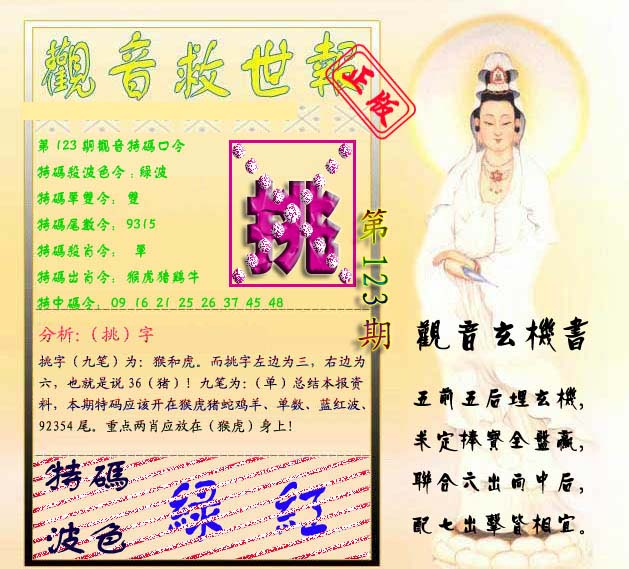 觀音救世報
正版
第123期觀音特碼口令
特碼殺波色令:綠波
特碼單雙令: 雙
特碼尾數令: 9315
特碼殺肖令: 單
特碼出肖令: 猴虎猪鷄牛
特中碼令: 09 16 21 25 26 37 45 48
挑
第123期
分析:(挑)字
挑字(九笔)为:猴和虎。而挑字左边为三,右边为
六,也就是说36(猪)!九笔为:(单)总结本报资
料,本期特码应该开在猴虎猪蛇鸡羊、单数、蓝红波、
92354尾。重点两肖应放在(猴虎)身上!
特碼
波色
綠 紅
觀音玄機書
五前五后埋玄機,
米定棒寶全盤贏,
聯合六出而中后,
配七出擊皆相宜。